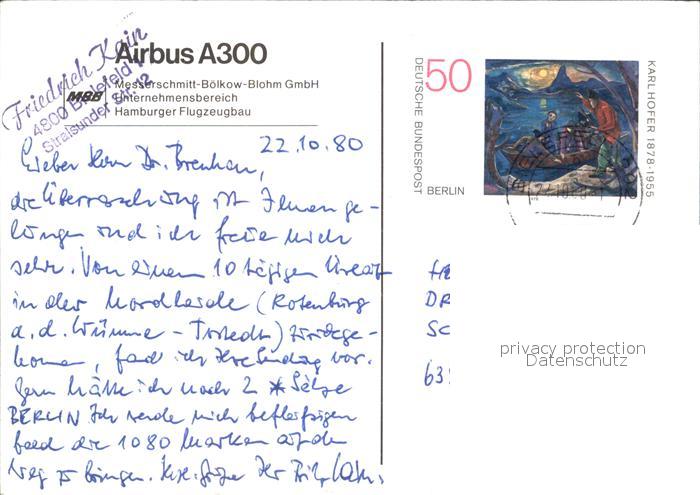 Friedrich Kain
4800 Bielefeld 1
Stralsunder Str. 12
Airbus A300
MBB
Messerschmitt-Bölkow-Blohm GmbH
Unternehmensbereich
Hamburger Flugzeugbau
22.10.80
Lieber Herr Dr.
die Überraschung ist Ihnen ge-
lungen und ich freue mich
sehr. Von einem 10 tägigen Urlaub
in der Nordheide (Rotenburg
a.d. Wümme - Tostedt) zurückge-
kommen, fand ich Ihre Sendung vor.
Gern hätte ich noch 2 Sätze
BERLIN Ich werde mich befleißigen
bald die 1080 Marken auf den
Weg zu bringen. Herzl. Grüße Ihr
DEUTSCHE BUNDESPOST
50
BERLIN
KARL HOFER 1878-1955
DR
SC
63
privacy protection
Datenschutz